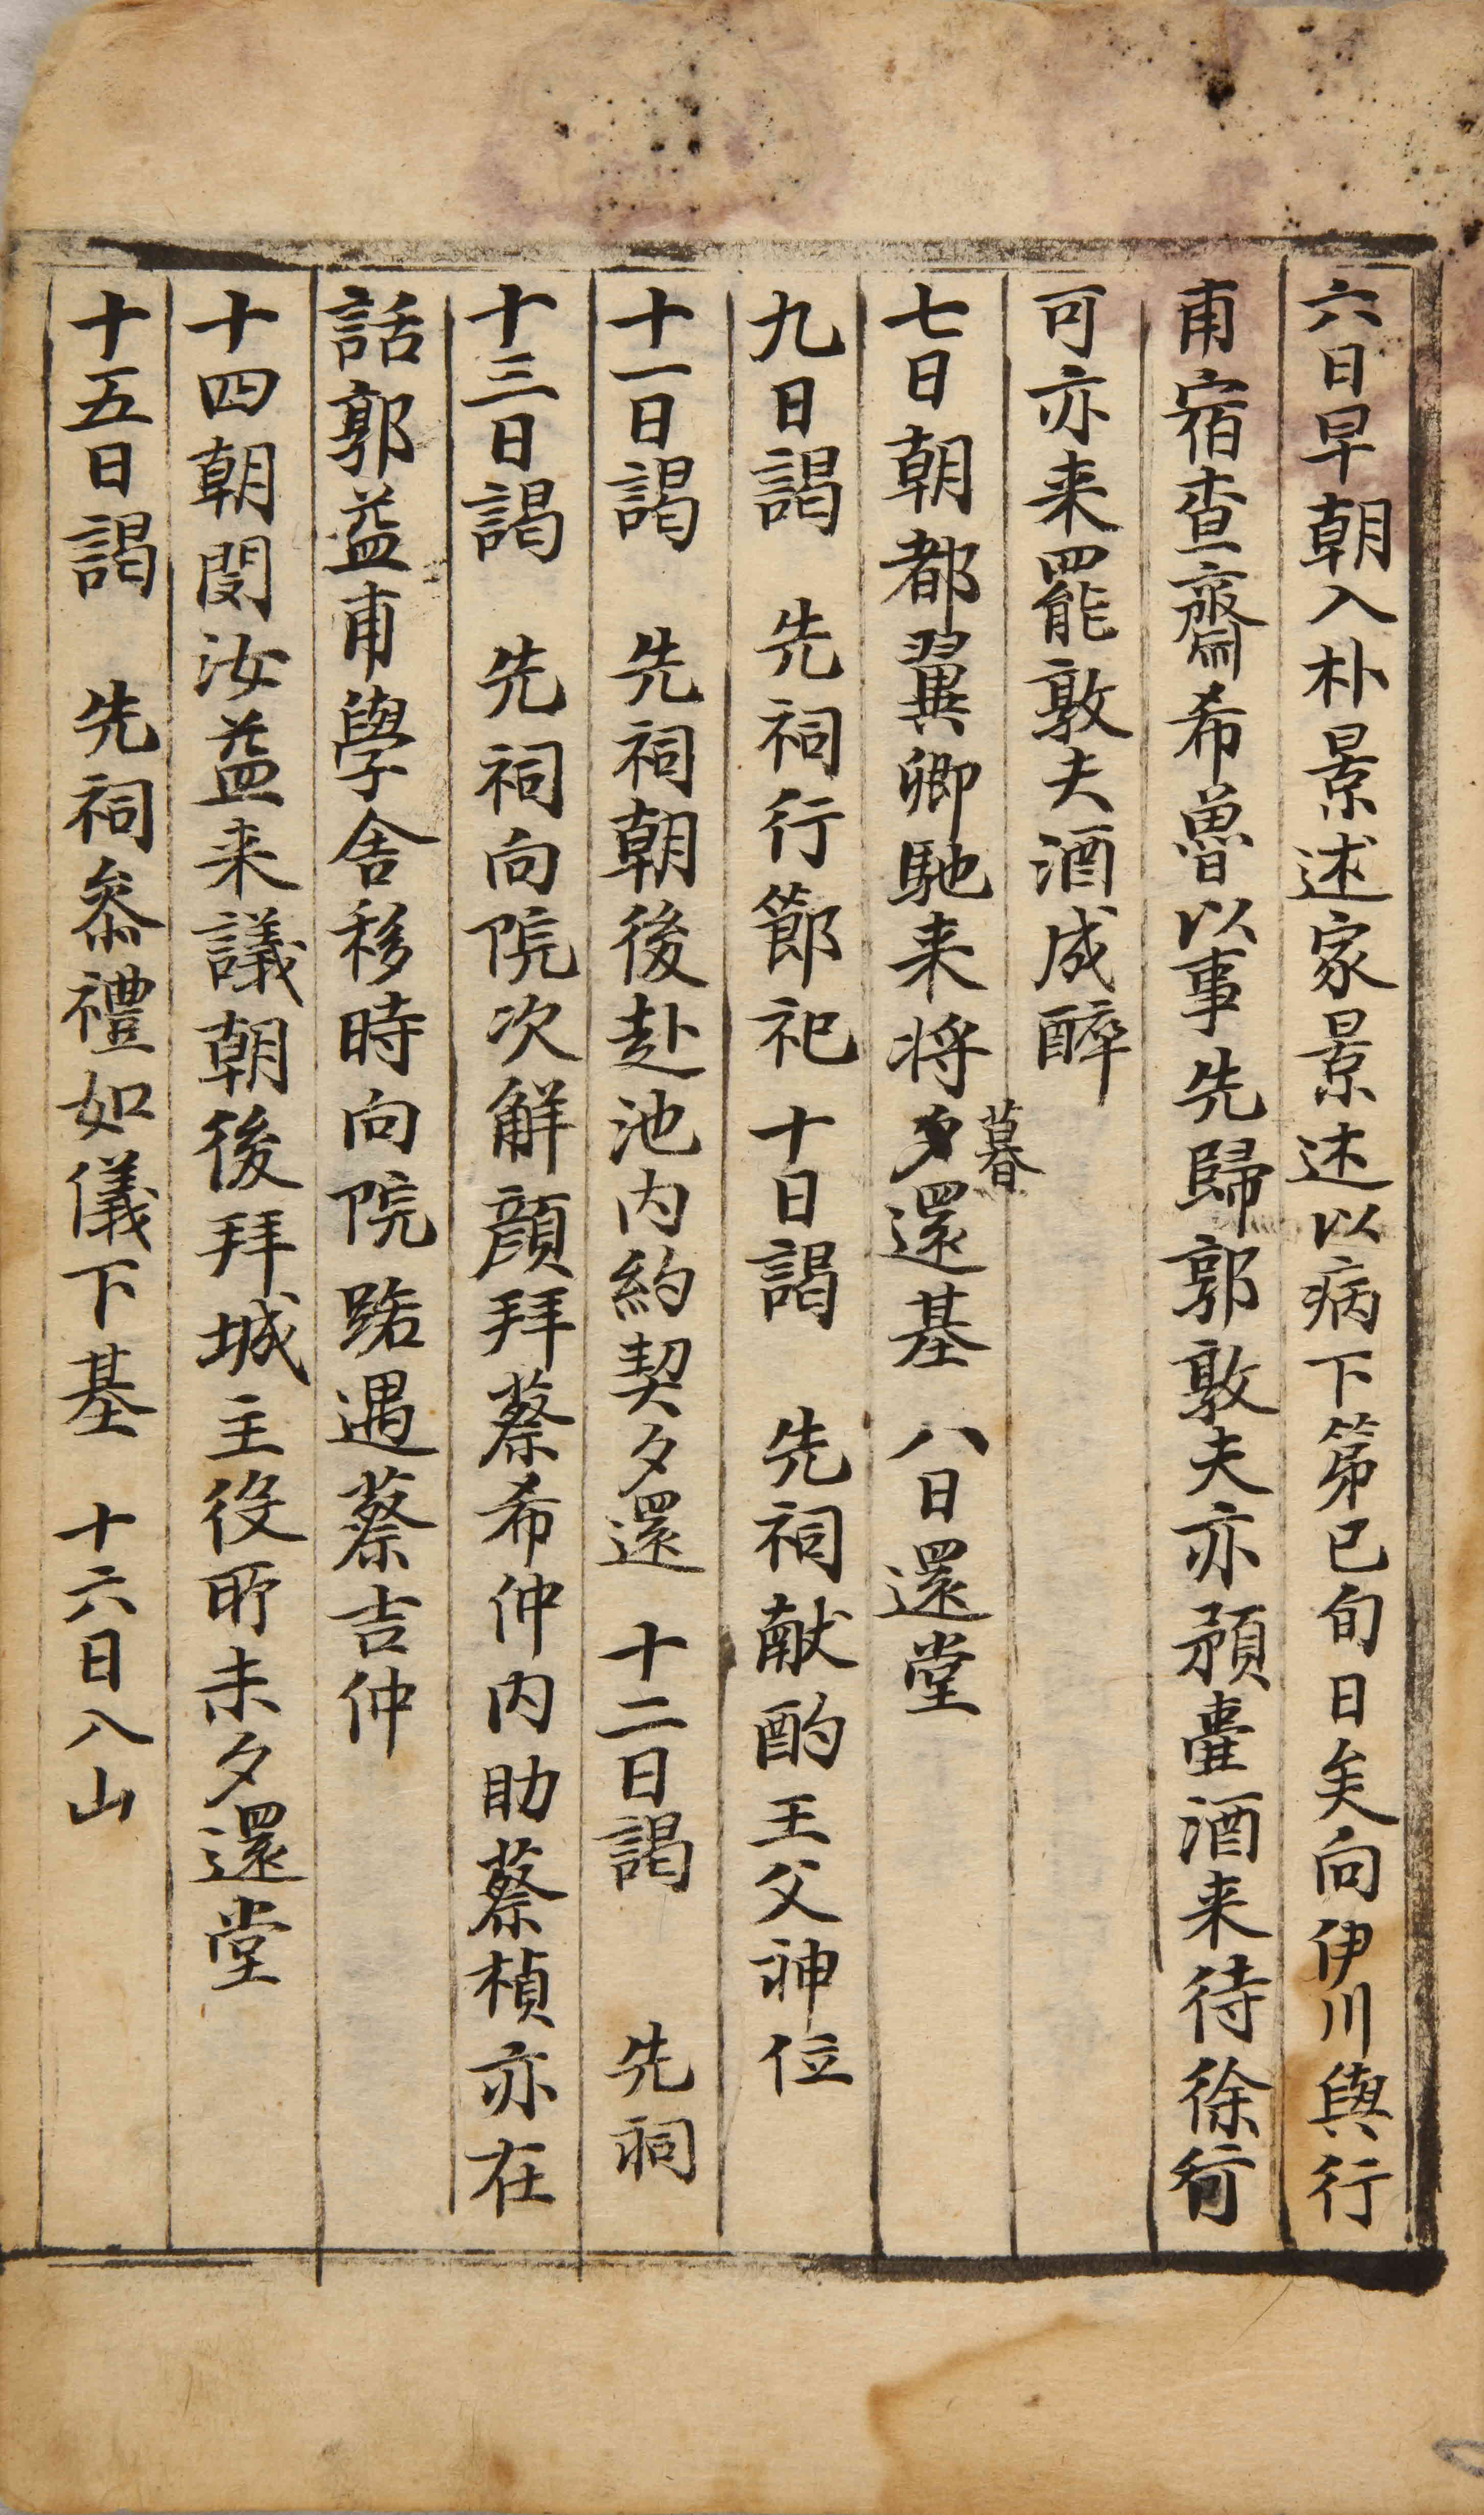 六日早朝入朴景述家景述以病下第已旬日矣向伊川與行
甫宿査齋希魯以事先歸郭敦夫亦預臺酒来待徐行
可亦来罷敦夫酒成醉
七日朝都翼卿馳来将夕暮還基 八日還堂
九日謁 先祠行節祀 十日謁 先祠献酌王父神位
十一日謁 先祠朝後赴池内約契夕還 十二日謁 先祠
十三日謁 先祠向院次觧顔拜蔡希仲内助蔡楨亦在
話郭益甫學舍移時向院路遇蔡吉仲
十四朝閔汝益来議朝後拜城主役所未夕還堂
十五日謁 先祠叅禮如儀下基 十六日入山